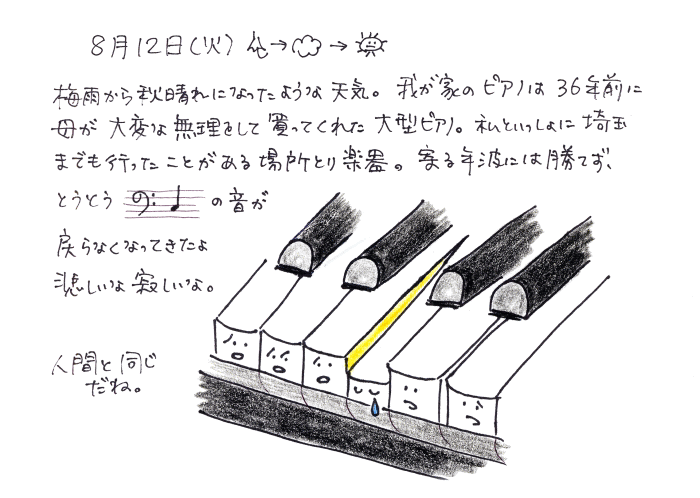 8月12日(火) → →
梅雨から秋晴れになったような天気。我が家のピアノは36年前に
母が大変な無理をして買ってくれた大型ピアノ。私といっしょに埼玉
までも行ったことがある場所とり楽器。寄る年波には勝てず、
とうとう の音が
戻らなくなってきたよ
悲しいな寂しいな。
人間と同じ
だね。